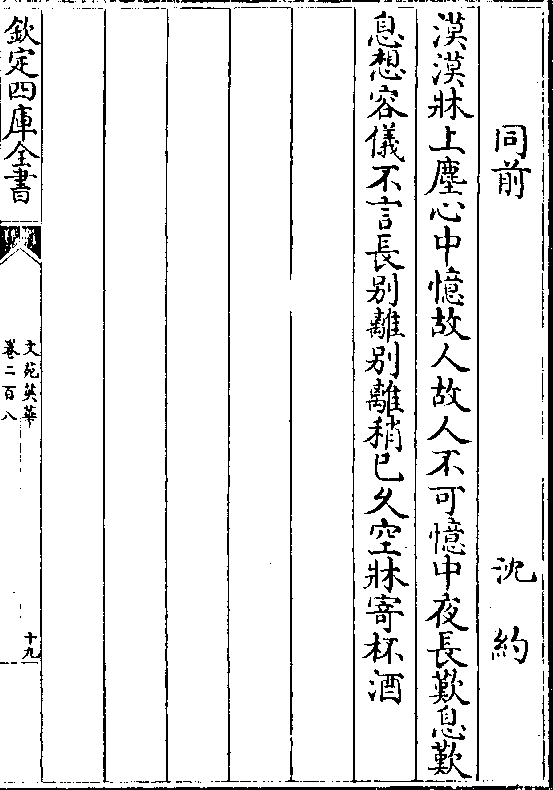 同前 沈約
漠漠牀上塵心中憶故人故人不可憶中夜長歎息歎
息想容儀不言長别離别離稍已久空牀寄杯酒
欽定四庫全書
文苑英華
卷二百八
十九